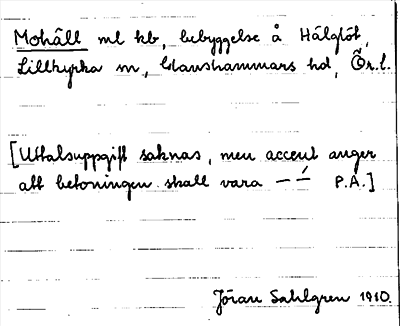 Mohäll ml hb, bebyggelse å Hälglöt,
Lillkyrka sn, Glanshammars hd, Ör. l.
[Uttalsuppgift saknas, men accent anger
att betoningen skall vara – –́ P.A.]
Jöran Sahlgren 1910.